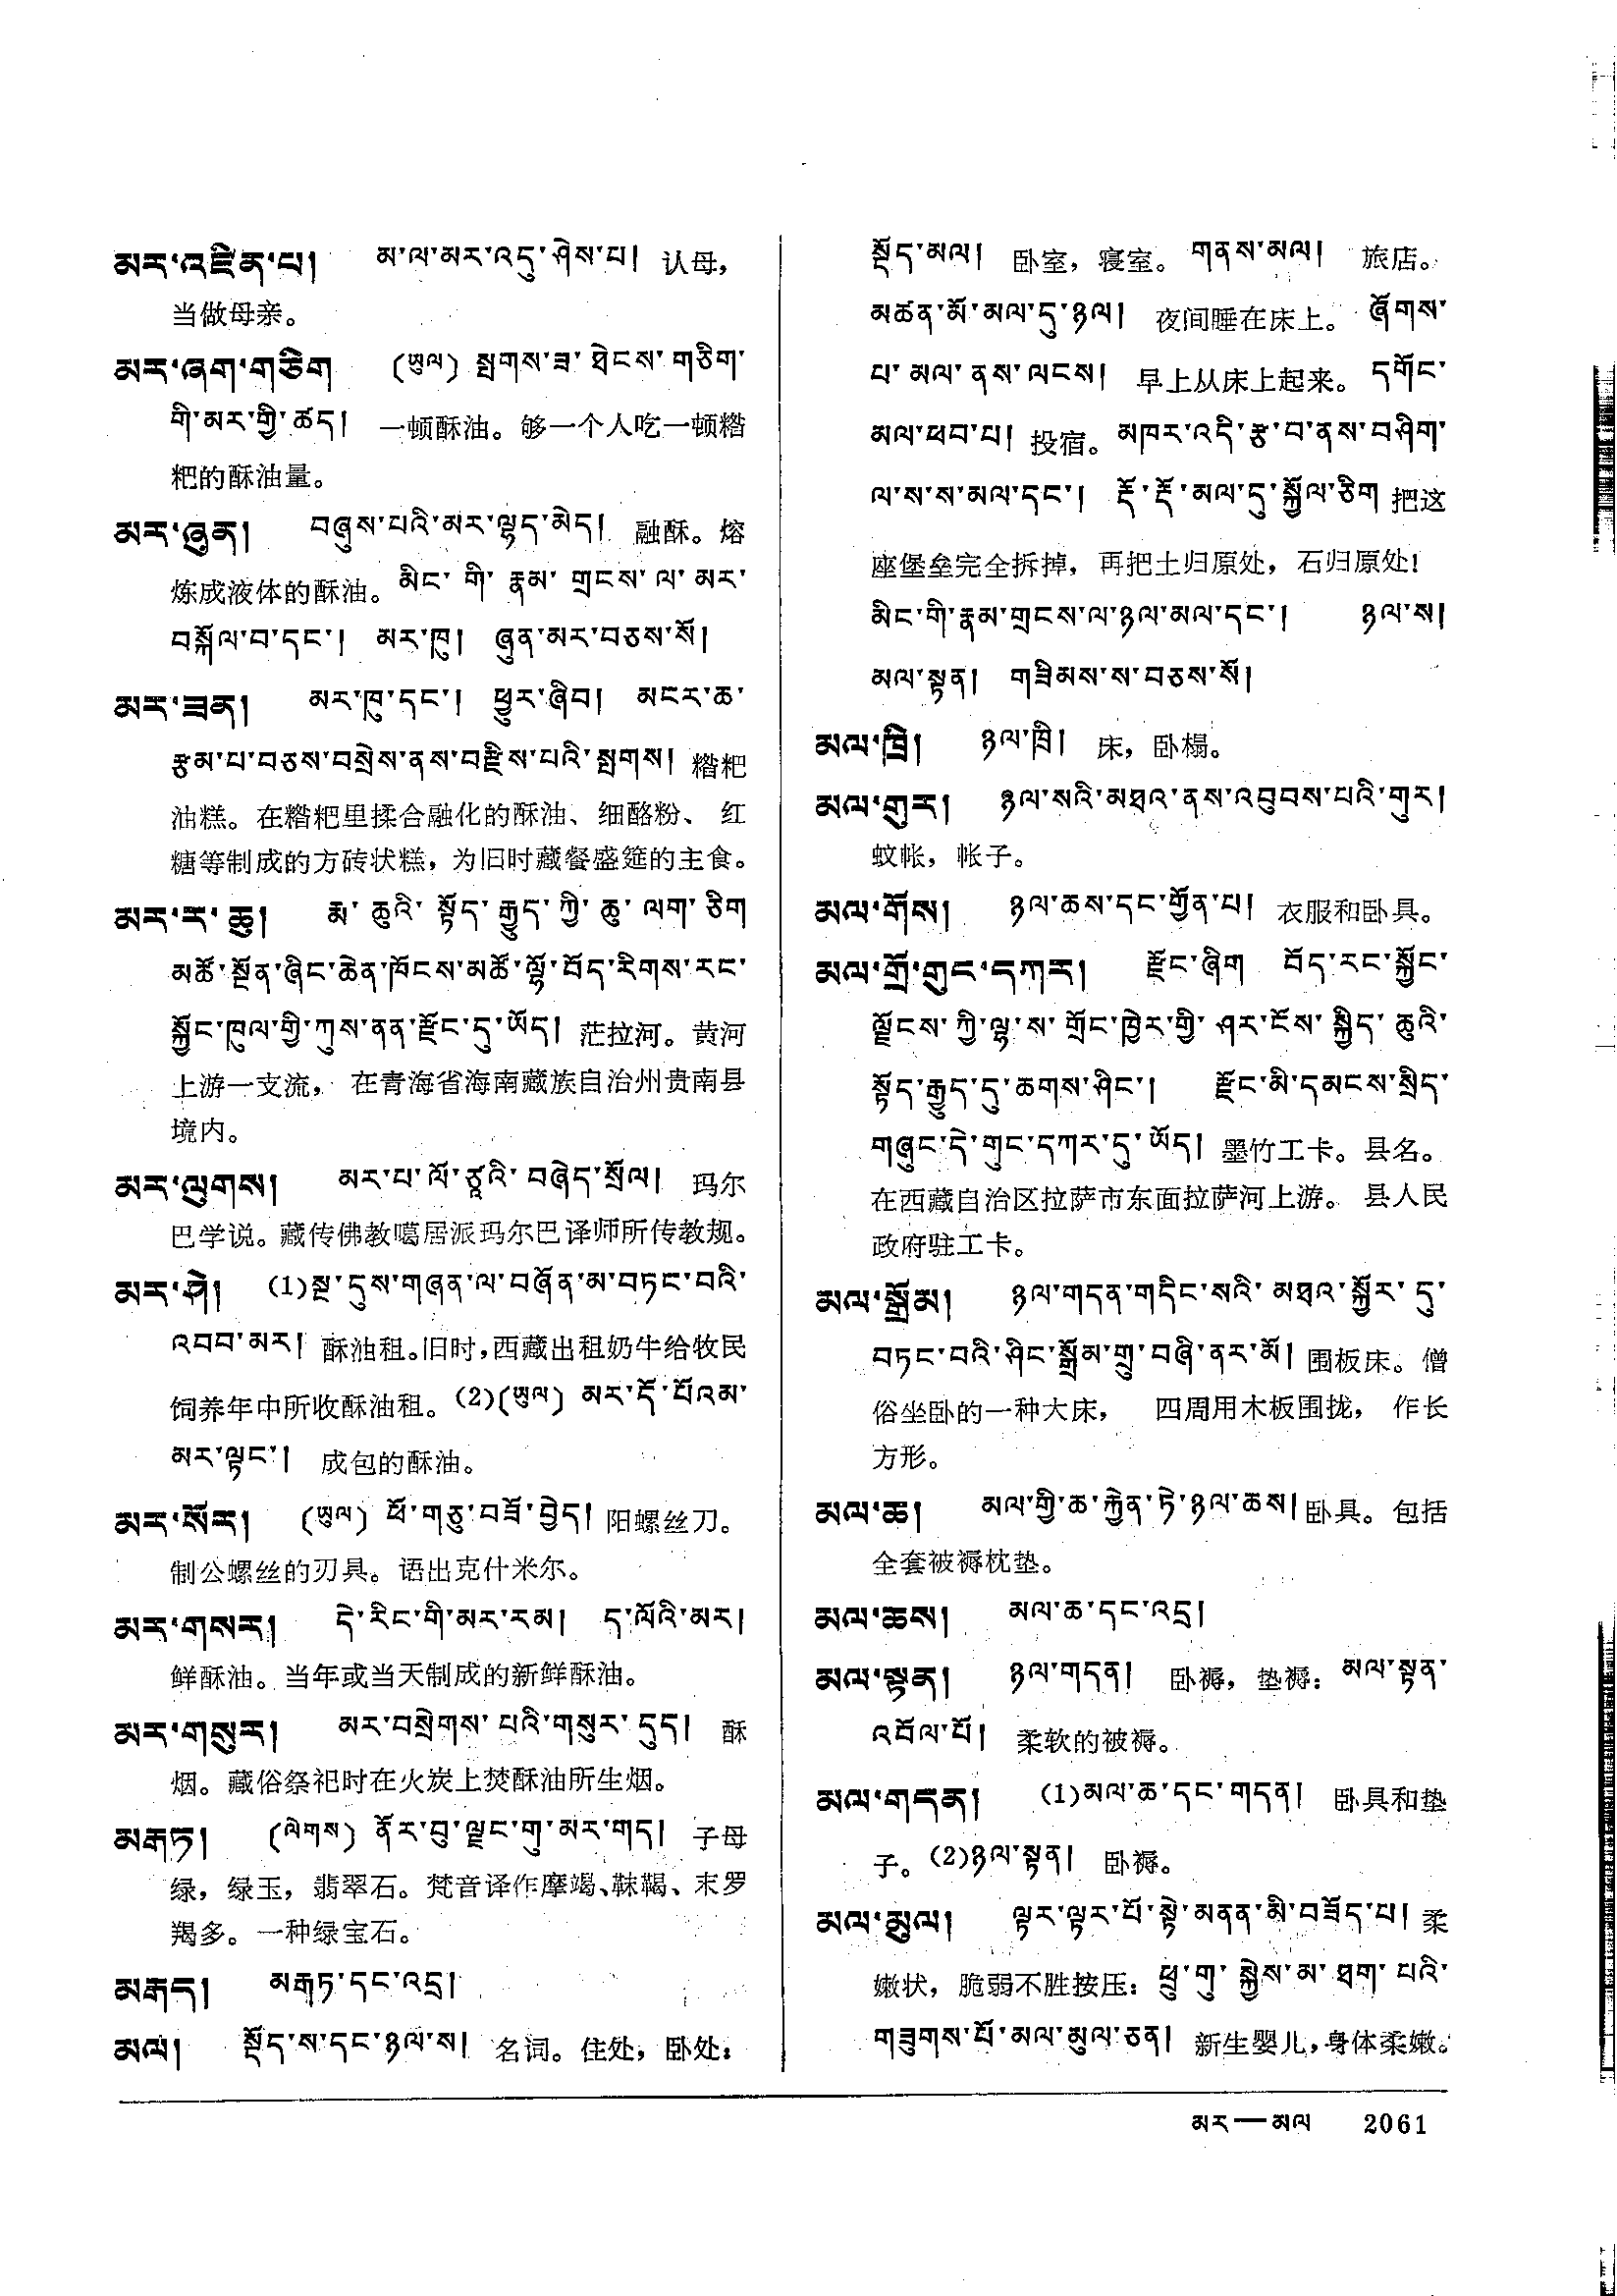 མར་འཛིན་པ། མ་ལ་མར་འདུ་ཤེས་པ། 认母，
当做母亲。
མར་ཞག་གཅིག (ཡུལ) སྤགས་ཟ་ཐེངས་གཅིག་
གི་མར་གྱི་ཚད། 一顿酥油。够一个人吃一顿糌
粑的酥油量。
མར་ཞུན། བཞུས་པའི་མར་ལྷད་མེད། 融酥。熔
炼成液体的酥油。མིང་གི་རྣམ་གྲངས་ལ་མར་
བསྐོལ་བ་དང་། མར་ཁུ། ཞུན་མར་བཅས་སོ།
མར་ཟན། མར་ཁུ་དང་། ཕྱུར་ཞིབ། མངར་ཆ་
རྩམ་པ་བཅས་བསྲེས་ནས་བརྫིས་པའི་སྤགས། 糌粑
油糕。在糌粑里揉合融化的酥油、细酪粉、红
糖等制成的方砖状糕，为旧时藏餐盛筵的主食。
མར་ར་ཆུ། རྨ་ཆུའི་སྟོད་རྒྱུད་ཀྱི་ཆུ་ལག་ཅིག
མཚོ་སྔོན་ཞིང་ཆེན་ཁོངས་མཚོ་ལྷོ་བོད་རིགས་རང་
སྐྱོང་ཁུལ་གྱི་ཀུས་ནན་རྫོང་དུ་ཡོད། 茫拉河。黄河
上游一支流，在青海省海南藏族自治州贵南县
境内。
མར་ལུགས། མར་པ་ལོ་ཙཱའི་བཞེད་སྲོལ། 玛尔
巴学说。藏传佛教噶居派玛尔巴译师所传教规。
མར་ཤེ། (1)སྔ་དུས་གཞན་ལ་བཞོན་མ་བཏང་བའི་
འབབ་མར། 酥油租。旧时，西藏出租奶牛给牧民
饲养年中所收酥油租。(2)(ཡུལ) མར་དོ་པོའམ་
མར་ལྟང་། 成包的酥油。
མར་སོར། (ཡུལ) ཕོ་གཅུ་བཟོ་བྱེད། 阳螺丝刀。
制公螺丝的刃具。语出克什米尔。
མར་གསར། དེ་རིང་གི་མར་རམ། ད་ལོའི་མར།
鲜酥油。当年或当天制成的新鲜酥油。
མར་གསུར། མར་བསྲེགས་པའི་གསུར་དུད། 酥
烟。藏俗祭祀时在火炭上焚酥油所生烟。
མརྒཏ། (ལེགས) ནོར་བུ་ལྗང་གུ་མར་གད། 子母
绿，绿玉，翡翠石。梵音译作摩竭、靺鞨、末罗
羯多。一种绿宝石。
མརྒད། མརྒཏ་དང་འདྲ།
མལ། སྡོད་ས་དང་ཉལ་ས། 名词。住处，卧处：
སྡོད་མལ། 卧室，寝室。གནས་མལ། 旅店。
མཚན་མོ་མལ་དུ་ཉལ། 夜间睡在床上。ཞོགས་
པ་མལ་ནས་ལངས། 早上从床上起来。དགོང་
མལ་ཕབ་པ། 投宿。མཁར་འདི་རྩ་བ་ནས་བཤིག་
ལ་ས་ས་མལ་དང་། རྡོ་རྡོ་མལ་དུ་སྐྱོལ་ཅིག 把这
座堡垒完全拆掉，再把土归原处，石归原处！
མིང་གི་རྣམ་གྲངས་ལ་ཉལ་མལ་དང་། ཉལ་ས།
མལ་སྟན། གཟིམས་ས་བཅས་སོ།
མལ་ཁྲི། ཉལ་ཁྲི། 床，卧榻。
མལ་གུར། ཉལ་སའི་མཐའ་ནས་འབུབས་པའི་གུར།
蚊帐，帐子。
མལ་གོས། ཉལ་ཆས་དང་གྱོན་པ། 衣服和卧具。
མལ་གྲོ་གུང་དཀར། རྫོང་ཞིག བོད་རང་སྐྱོང་
ལྗོངས་ཀྱི་ལྷ་ས་གྲོང་ཁྱེར་གྱི་ཤར་ངོས་སྐྱིད་ཆུའི་
སྟོད་རྒྱུད་དུ་ཆགས་ཤིང་། རྫོང་མི་དམངས་སྲིད་
གཞུང་དེ་གུང་དཀར་དུ་ཡོད། 墨竹工卡。县名。
在西藏自治区拉萨市东面拉萨河上游。县人民
政府驻工卡。
མལ་སྒྲོམ། ཉལ་གདན་གདིང་སའི་མཐའ་སྐྱོར་དུ་
བཏང་བའི་ཤིང་སྒྲོམ་གྲུ་བཞི་ནར་མོ། 围板床。僧
俗坐卧的一种大床，四周用木板围拢，作长
方形。
མལ་ཆ། མལ་གྱི་ཆ་རྐྱེན་ཏེ་ཉལ་ཆས། 卧具。包括
全套被褥枕垫。
མལ་ཆས། མལ་ཆ་དང་འདྲ།
མལ་སྟན། ཉལ་གདན། 卧褥，垫褥：མལ་སྟན་
འབོལ་པོ། 柔软的被褥。
མལ་གདན། (1)མལ་ཆ་དང་གདན། 卧具和垫
子。(2)ཉལ་སྟན། 卧褥。
མལ་མུལ། ལྟར་ལྟར་པོ་སྟེ་མནན་མི་བཟོད་པ། 柔
嫩状，脆弱不胜按压：ཕྲུ་གུ་སྐྱེས་མ་ཐག་པའི་
གཟུགས་པོ་མལ་མུལ་ཅན། 新生婴儿，身体柔嫩。
མར—མལ 2061